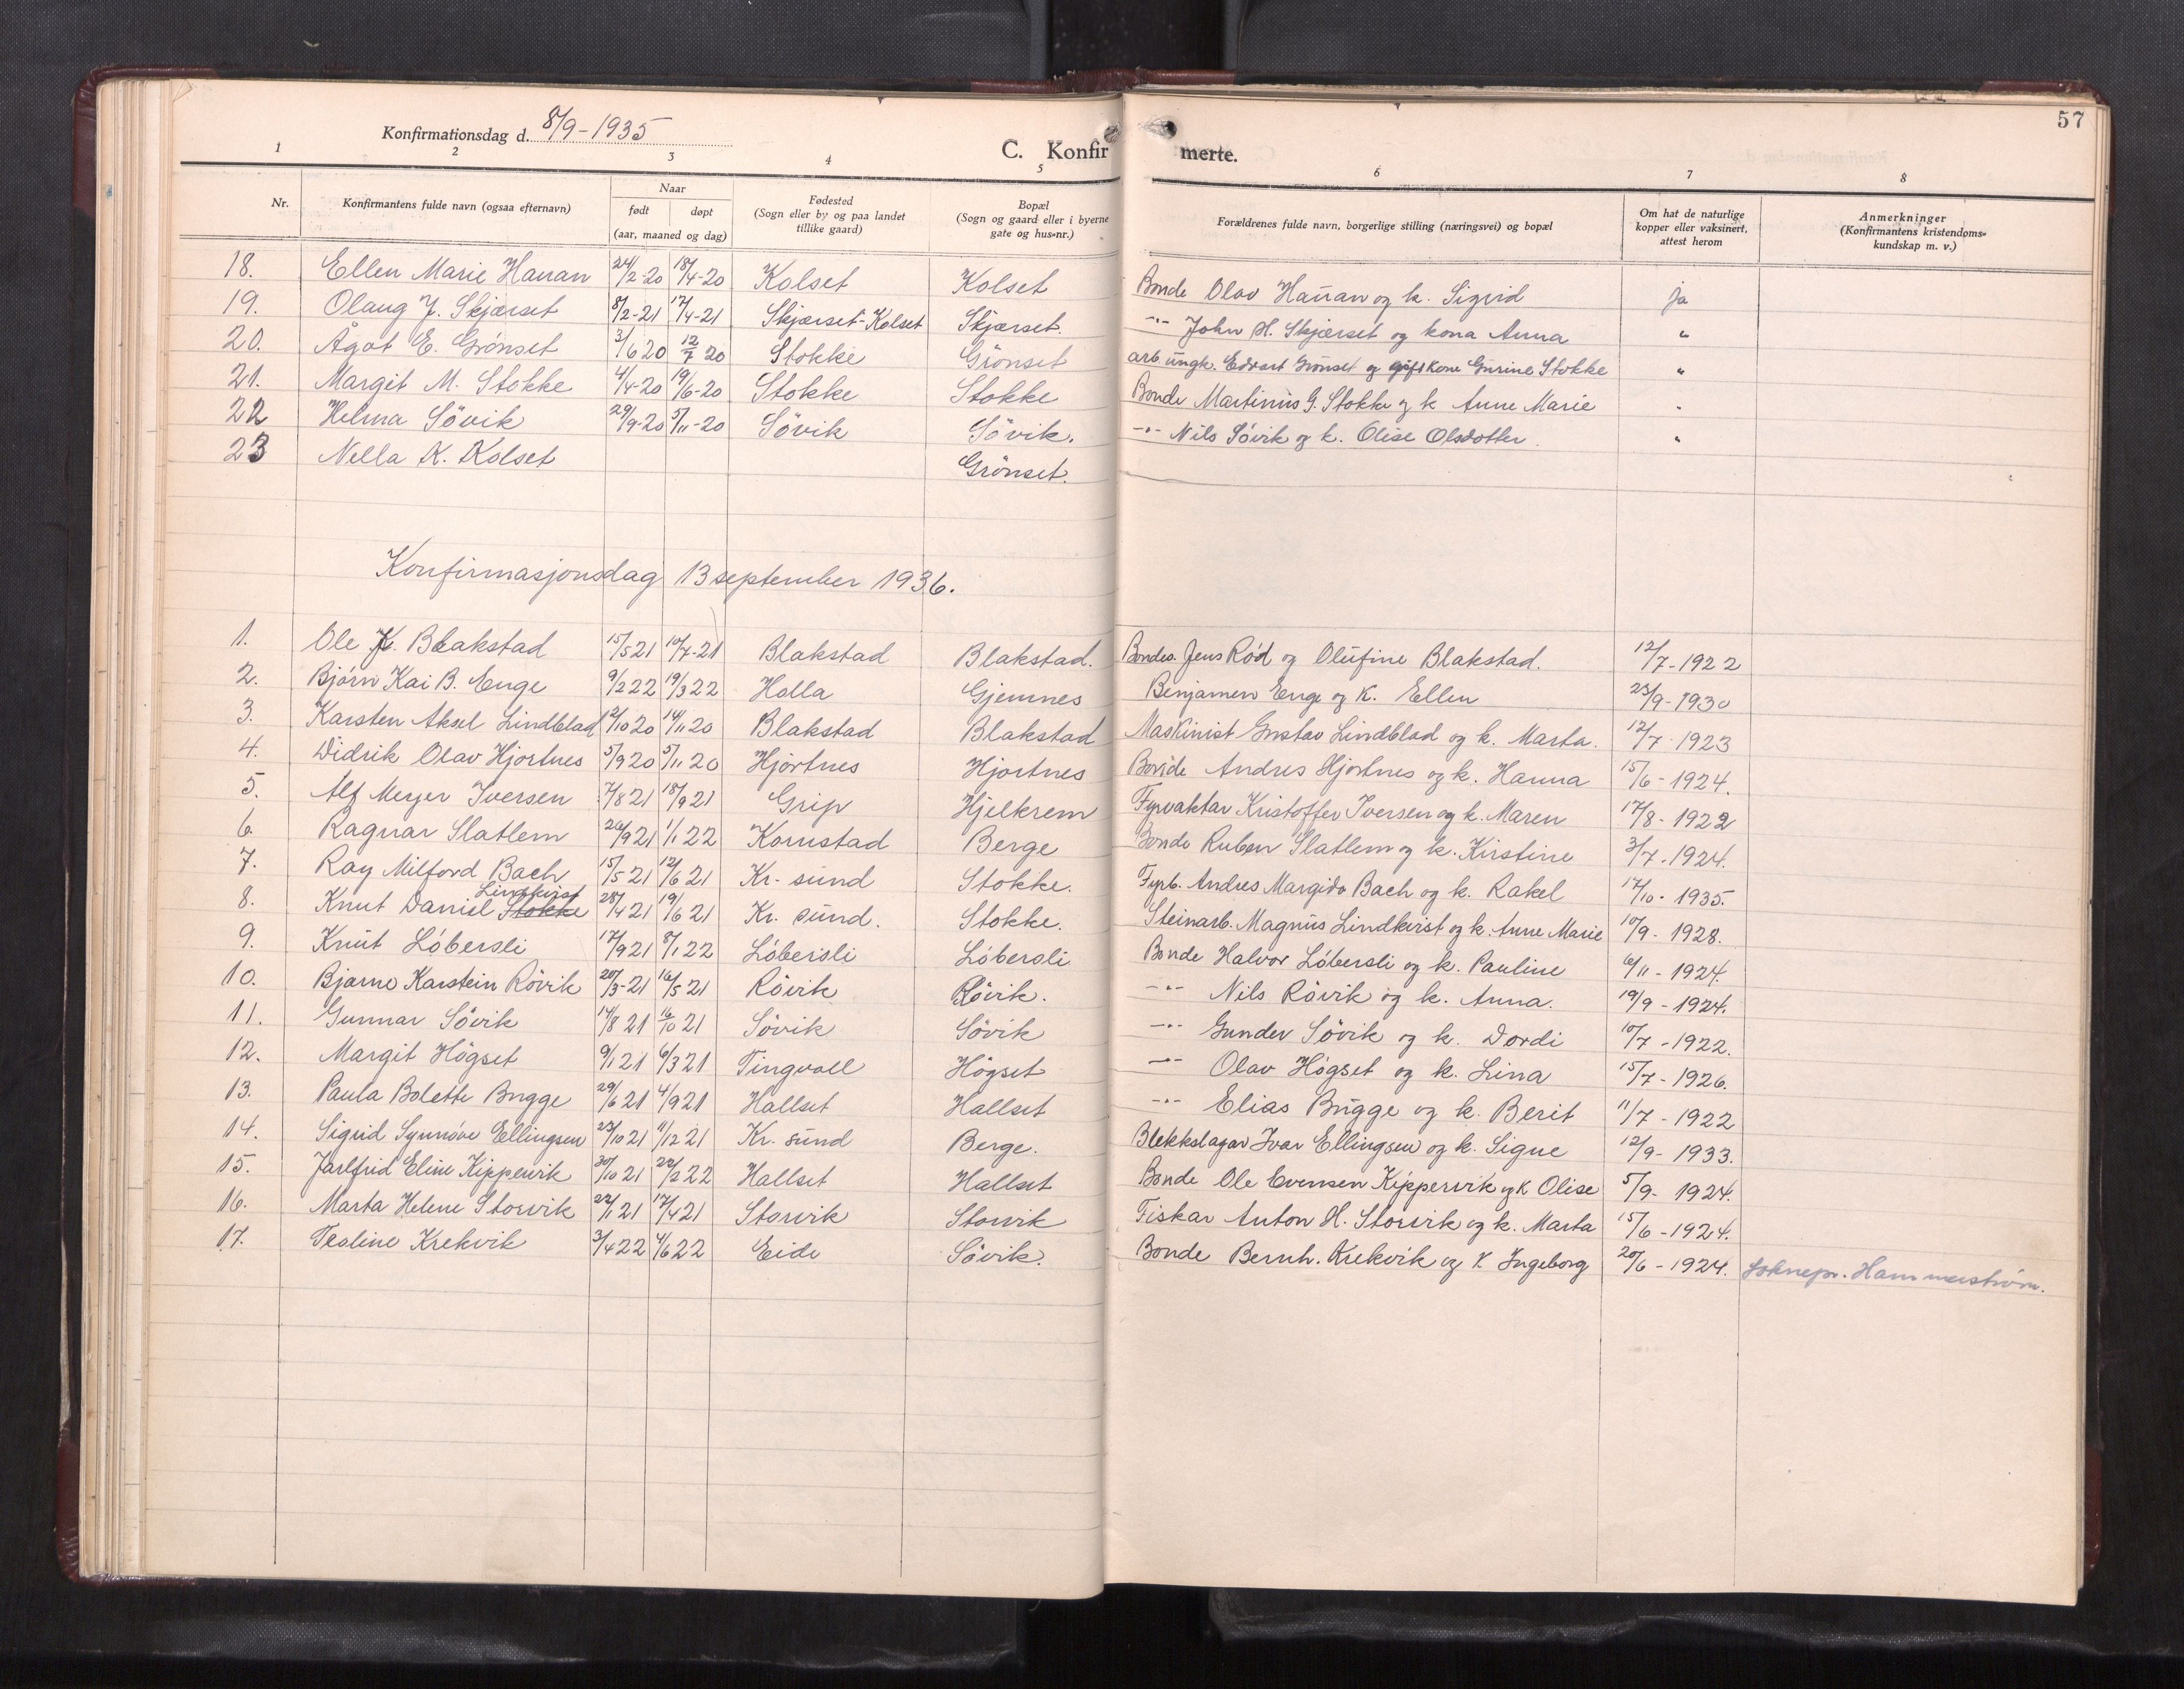 57
Konfirmationsdag d. 8/9-1935
C. Konfirmerte.
1 2 3 4 5 6 7 8
Nr.
Konfirmantens fulde navn (ogsaa efternavn)
Naar
født døpt
(aar, maaned og dag)
Fødested
(Sogn eller by og paa landet
tillike gaard)
Bopæl
(Sogn og gaard eller i byerne
gate og hus-nr.)
Forældrenes fulde navn, borgerlige stilling (næringsvei) og bopæl
Om hat de naturlige
kopper eller vaksinert,
attest herom
Anmerkninger
(Konfirmantens kristendoms-
kundskap m. v.)
18. Ellen Marie Hanan 24/2-20 18/4-20 Kolset Kolset Bonde Olav Hanan og k. Sigrid ja
19. Olaug J. Skjærset 8/2-21 17/4-21 Skjærset-Kolset Skjærset. -"- John H. Skjærset og kona Anna "
20. Ågot E. Grönset 3/6 20 12/7 20 Stokke Grönset arb. ungk. Edvart Grönset og gift kone Gurine Stokke "
21. Margit M. Stokke 4/4-20 19/6-20 Stokke Stokke Bonde Martinus G. Stokke og k Anne Marie "
22 Helma Sövik 29/9-20 5/11-20 Sövik Sövik. -"- Nils Sövik og k. Olise Olsdotter. "
23 Nella K. Kolset Grönset.
Konfirmasjonsdag 13 september 1936.
1. Ole K. Blakstad 15/5 21 10/7-21 Blakstad Blakstad. Bondes. Jens Röd og Olufine Blakstad. 12/7-1922
2. Björn Kai B. Enge 9/2 22 19/3 22 Halla Gjemnes Benjamen Enge og K. Ellen 23/9-1930
3. Karsten Aksel Lindblad 12/10 20 14/11 20 Blakstad Blakstad Maskinist Gustav Lindblad og k. Marta. 12/7-1923
4. Didrik Olav Hjortnes 5/9 20 5/11 20 Hjortnes Hjortnes Bonde Andres Hjortnes og k. Hanna 15/6-1924.
5. Alf Meyer Iversen 7/8 21 18/9 21 Grip Hjelkrem Fyrvaktar Kristoffer Iversen og k. Maren 17/8-1922
6. Ragnar Slatlem 26/9 21 1/1 22 Kornstad Berge Bonde Ruben Slatlem og k. Kirstine 3/7-1924.
7. Ray Milford Bach 15/5 21 12/6 21 Kr.-sund Stokke. Fyrb. Andres Margido Bach og k. Rakel 17/10-1935.
8. Knut Daniel Stokke Lindkvist 28/4 21 19/6 21 Kr. sund. Stokke. Steinarb. Magnus Lindkvist og k. Anne Marie 10/9-1928.
9. Knut Löbersli 17/9 21 8/1 22 Löbersli Löbersli Bonde Halvor Löbersli og k. Pauline 6/11-1924.
10. Bjarne Karstein Rövik 20/3-21 16/5 21 Rövik Rövik. -"- Nils Rövik og k. Anna. 19/9-1924.
11. Gunnar Sövik 14/8 21 16/10 21 Sövik Sövik -"- Gunder Sövik og k. Dordi 10/7-1922.
12. Margit Högset 9/1 21 6/3 21 Tingvoll Högset -"- Olav Högset og k. Lina 15/7-1926.
13. Paula Bolette Bugge 29/6 21 4/9 21 Hallset Hallset -"- Elias Bugge og k. Berit 11/7-1922
14. Sigrid Synnöve Ellingsen 23/10 21 11/12 21 Kr. sund Berge. Blekkslagar Ivar Ellingsen og k. Signe 12/9-1933.
15. Jarlfrid Eline Kippervik 30/10 21 22/2 22 Hallset Hallset Bonde Ole Evensen Kippervik og K Olise 5/9-1924.
16. Marta Helene Storvik 22/1 21 17/4 21 Storvik Storvik Fiskar Anton H. Storvik og k. Marta 15/6-1924.
17. Tealine Krekvik 3/4 22 4/6 22 Eide Sövik. Bonde Bernh. Krekvik og K Ingeborg 20/6-1924. Soknepr. Hammerström.